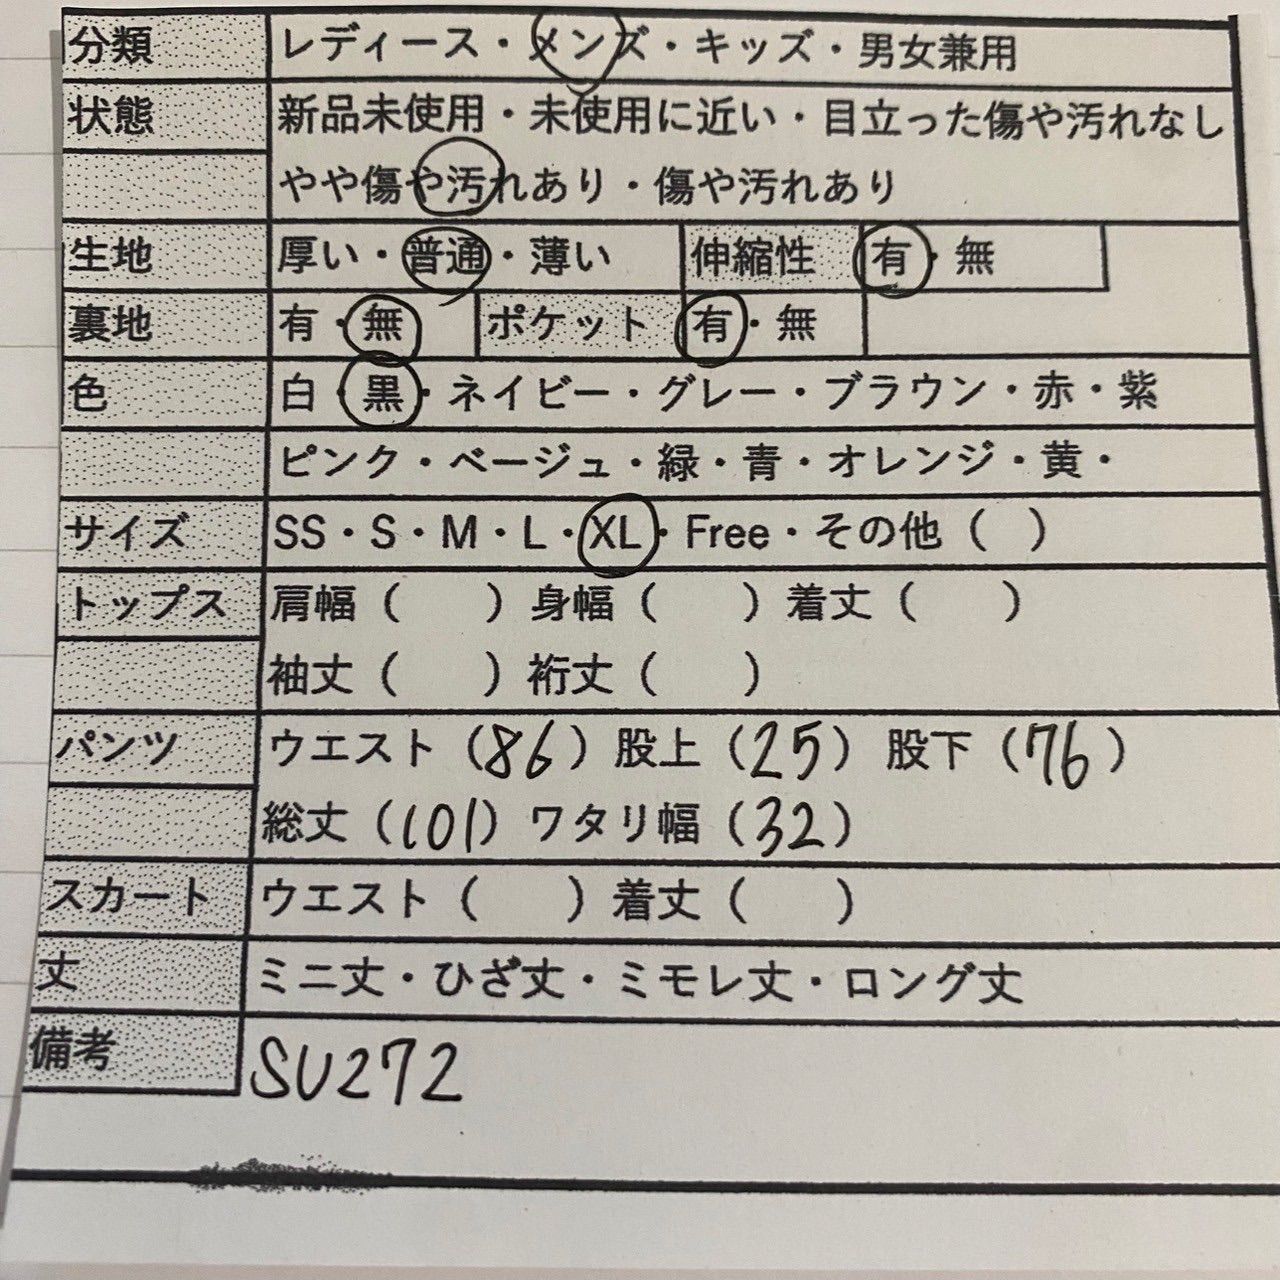 分類 レディース・メンズ・キッズ・男女兼用
状態 新品未使用・未使用に近い・目立った傷や汚れなし
やや傷や汚れあり・傷や汚れあり
生地 厚い・普通・薄い 伸縮性 有・無
裏地 有・無 ポケット 有・無
色 白・黒・ネイビー・グレー・ブラウン・赤・紫
ピンク・ベージュ・緑・青・オレンジ・黄・
サイズ SS・S・M・L・XL・Free・その他（ ）
トップス 肩幅（ ）身幅（ ）着丈（ ）
袖丈（ ）裄丈（ ）
パンツ ウエスト（86）股上（25）股下（76）
総丈（101）ワタリ幅（32）
スカート ウエスト（ ）着丈（ ）
丈 ミニ丈・ひざ丈・ミモレ丈・ロング丈
備考 SU272